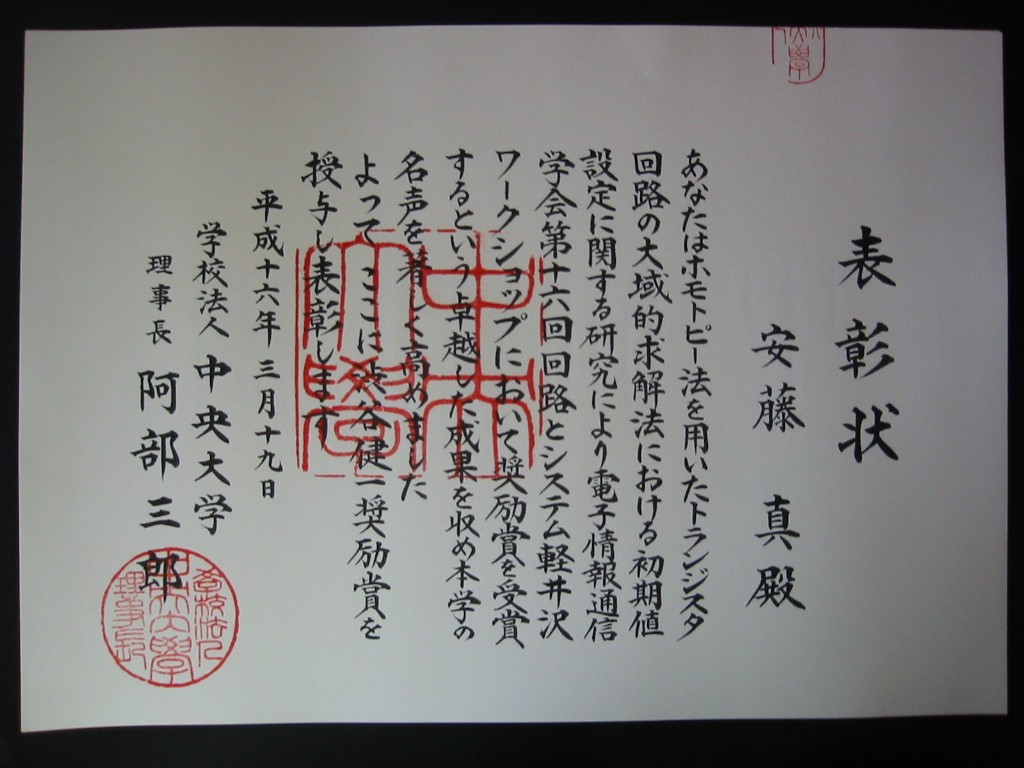 表彰状
安藤 真殿
あなたはホモトピー法を用いたトランジスタ
回路の大域的求解法における初期値
設定に関する研究により電子情報通信
学会第十六回回路とシステム軽井沢
ワークショップにおいて奨励賞を受賞
するという卓越した成果を収め本学の
名声を著しく高めました
よってここに渋谷健一奨励賞を
授与し表彰します
平成十六年三月十九日
学校法人 中央大学
理事長 阿部三郎
中央大學